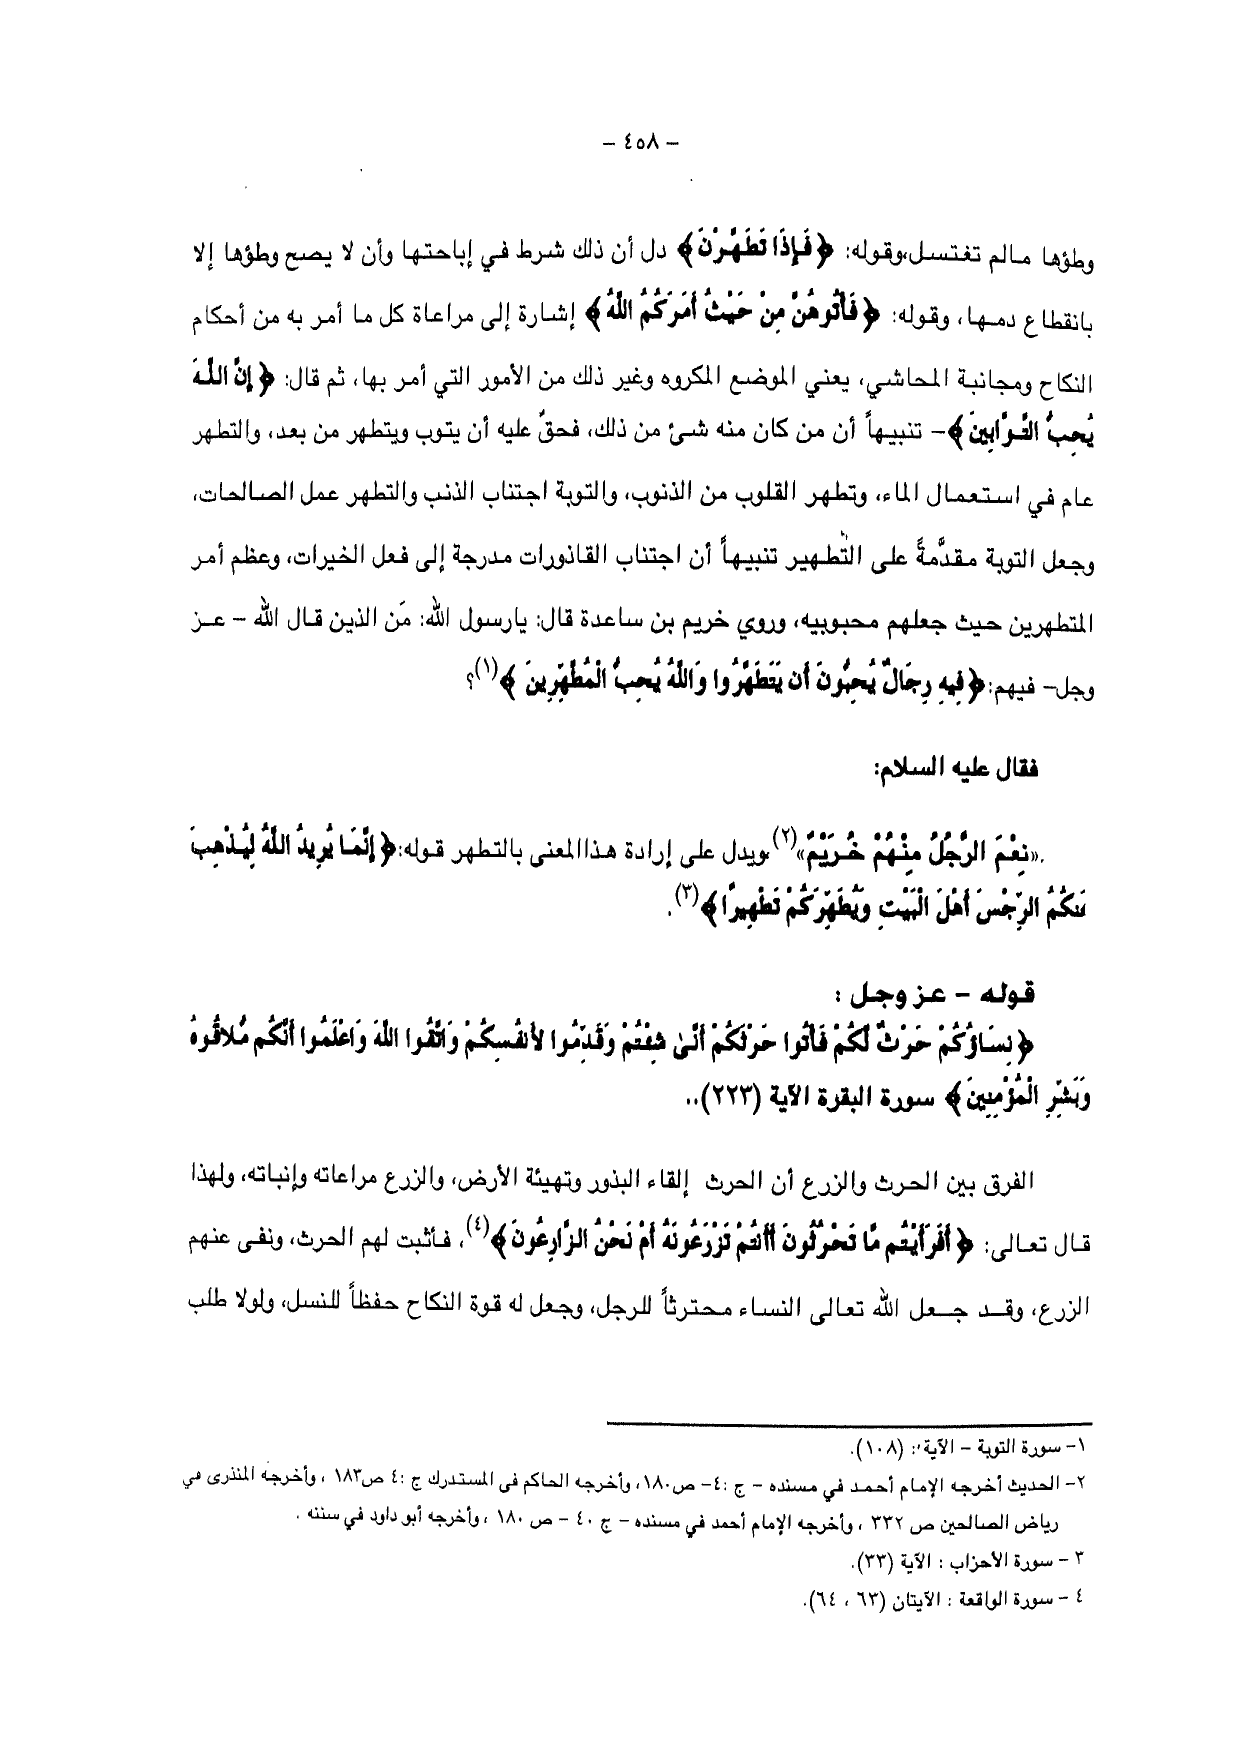 - ٤٥٨ -
وطؤها مالم تغتسل،وقوله: ﴿فَإِذَا تَطَهَّرْنَ﴾ دل أن ذلك شرط في إباحتها وأن لا يصح وطؤها إلا
بانقطاع دمها، وقوله: ﴿فَأْتُوهُنَّ مِنْ حَيْثُ أَمَرَكُمُ اللَّهُ﴾ إشارة إلى مراعاة كل ما أمر به من أحكام
النكاح ومجانبة المحاشي، يعني الموضع المكروه وغير ذلك من الأمور التي أمر بها، ثم قال: ﴿إِنَّ اللَّهَ
يُحِبُّ التَّوَّابِينَ﴾- تنبيهاً أن من كان منه شئ من ذلك، فحقٌ عليه أن يتوب ويتطهر من بعد، والتطهر
عام في استعمال الماء، وتطهر القلوب من الذنوب، والتوبة اجتناب الذنب والتطهر عمل الصالحات،
وجعل التوبة مقدَّمةً على التُطهير تنبيهاً أن اجتناب القاذورات مدرجة إلى فعل الخيرات، وعظم أمر
المتطهرين حيث جعلهم محبوبيه، وروي خريم بن ساعدة قال: يارسول الله: مَن الذين قال الله - عـز
وجل- فيهم:﴿فِيهِ رِجَالٌ يُحِبُّونَ أَن يَتَطَهَّرُوا وَاللَّهُ يُحِبُّ الْمُطَّهِّرِينَ﴾(١)؟
فقال عليه السلام:
.«نِعْمَ الرَّجُلُ مِنْهُمْ خُرَيْمٌ»(٢)ويدل على إرادة هذاالمعنى بالتطهر قوله:﴿إِنَّمَا يُرِيدُ اللَّهُ لِيُذْهِبَ
عَنكُمُ الرِّجْسَ أَهْلَ الْبَيْتِ وَيُطَهِّرَكُمْ تَطْهِيرًا﴾(٣).
قوله - عز وجل :
﴿نِسَاؤُكُمْ حَرْثٌ لَّكُمْ فَأْتُوا حَرْثَكُمْ أَنَّىٰ شِئْتُمْ وَقَدِّمُوا لأَنفُسِكُمْ وَاتَّقُوا اللَّهَ وَاعْلَمُوا أَنَّكُم مُّلاقُوهُ
وَبَشِّرِ الْمُؤْمِنِينَ﴾ سورة البقرة الآية (٢٢٣)..
الفرق بين الحرث والزرع أن الحرث إلقاء البذور وتهيئة الأرض، والزرع مراعاته وإنباته، ولهذا
قال تعالى: ﴿أَفَرَأَيْتُم مَّا تَحْرُثُونَ أَأَنتُمْ تَزْرَعُونَهُ أَمْ نَحْنُ الزَّارِعُونَ﴾(٤)، فأثبت لهم الحرث، ونفى عنهم
الزرع، وقـد جـعل الله تعالى النساء محترثاً للرجل، وجعل له قوة النكاح حفظاً للنسل، ولولا طلب
١- سورة التوبة - الآية: (١٠٨).
٢- الحديث أخرجه الإمام أحمد في مسنده - ج :٤- ص١٨٠، وأخرجه الحاكم فى المستدرك ج :٤ ص١٨٣ ، وأخرجه المنذرى في
رياض الصالحين ص ٣٣٢ ، وأخرجه الإمام أحمد في مسنده - ج ٤٠ - ص ١٨٠ ، وأخرجه أبو داود في سننه .
٣ - سورة الأحزاب : الآية (٣٣).
٤ - سورة الواقعة : الآيتان (٦٣ ، ٦٤).